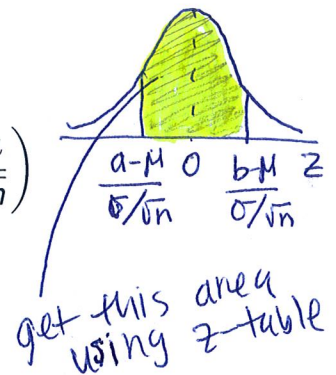 n)
a-μ
σ/√n
0
b-μ
σ/√n
Z
get this area
using z-table